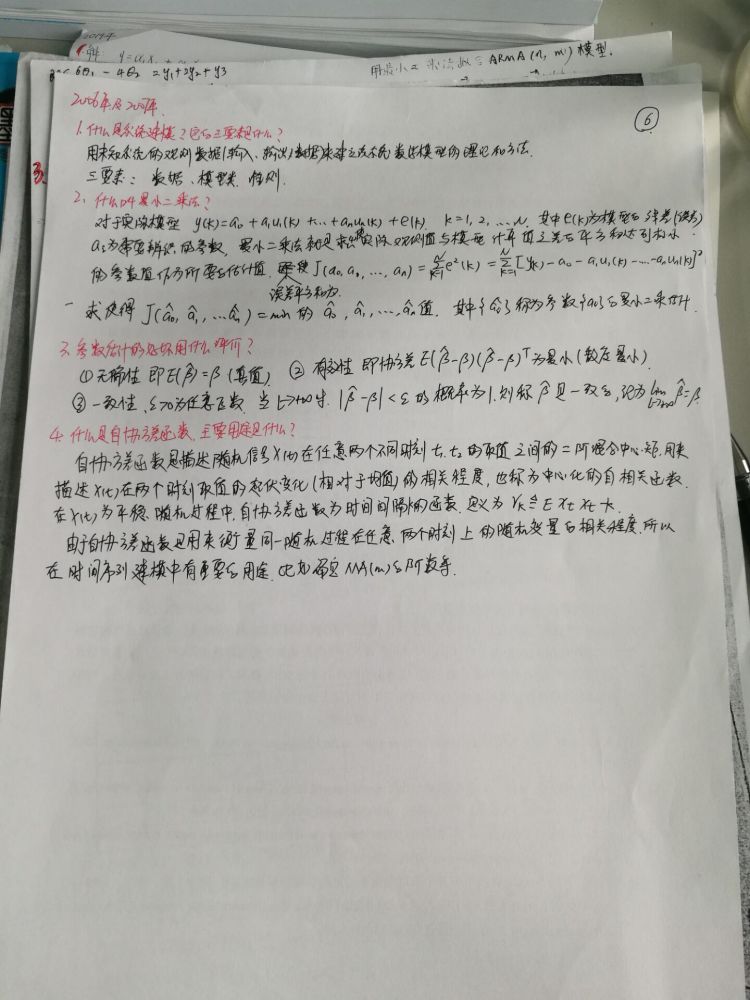 2014年
解: y=
6θ₁ - 4θ₂ = y₁+2y₂+y₃
用最小二乘法拟合 ARMA(n, m) 模型.
⑥
2006年及2007年
1. 什么是系统建模? 它的三要素是什么?
用未知系统的观测数据(输入、输出)数据来建立该系统数学模型的理论和方法.
三要素: 数据、模型类、准则.
2. 什么叫最小二乘法?
对于实际模型 y(k)=a₀+a₁u₁(k)+...+aₙuₙ(k)+e(k) k=1, 2, ... N. 其中e(k)为模型的残差(误差)
aᵢ为需要辨识的参数, 最小二乘法就是求出使实际观测值与模型计算值之差的平方和达到极小
的参数值作为所要的估计值. 即使 J(a₀, a₁, ..., aₙ)=∑ₖ₌₁ᴺe²(k)=∑ₖ₌₁ᴺ[y(k)-a₀-a₁u₁(k)-...-aₙuₙ(k)]²
误差平方和为
求使得 J(â₀, â₁, ... âₙ)=min 的 â₀, â₁, ... âₙ值. 其中{âᵢ}称为参数{aᵢ}的最小二乘估计.
3. 参数估计的好坏用什么评价?
① 无偏性 即E(β̂)=β (真值) ② 有效性 即协方差 E(β̂-β)(β̂-β)ᵀ为最小(散度最小)
③ 一致性, ε>0为任意正数, 当L→+∞时. |β̂-β|<ε的概率为1. 则称β̂具一致性, 记为 lim β̂=β.
L→+∞
4. 什么是自协方差函数, 主要用途是什么?
自协方差函数是描述随机信号X(t)在任意两个不同时刻t₁, t₂的取值之间的二阶混合中心矩, 用来
描述X(t)在两个时刻取值的起伏变化(相对于均值)的相关程度, 也称为中心化的自相关函数.
在X(t)为平稳随机过程中, 自协方差函数为时间间隔k的函数, 定义为 γₖ≜E xₜ xₜ₋ₖ.
由于自协方差函数是用来衡量同一随机过程在任意两个时刻上的随机变量的相关程度, 所以
在时间序列建模中有重要的用途. 比如确定MA(m)的阶数等.